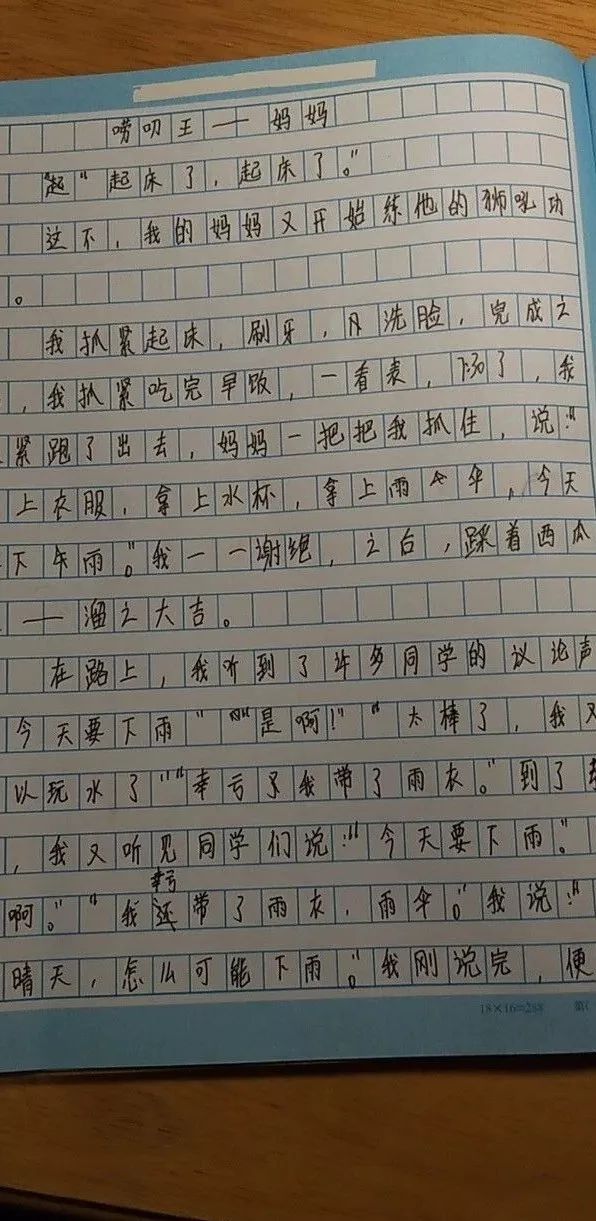 唠叨王——妈妈
"起"起床了，起床了。"
这不，我的妈妈又开始练他的狮吼功
。
我抓紧起床，刷牙，洗脸，完成之
，我抓紧吃完早饭，一看表，7:30了，我
紧跑了出去，妈妈一把把我抓住，说："
上衣服，拿上水杯，拿上雨伞，今天
下午雨。"我一一谢绝，之后，踩着西瓜
——溜之大吉。
在路上，我听到了许多同学的议论声
今天要下雨""是啊！""太棒了，我又
以玩水了""幸亏我带了雨衣。"到了
，我又听见同学们说："今天要下雨。"
啊。""我幸亏带了雨衣，雨伞。"我说："
晴天，怎么可能下雨。"我刚说完，便
18×16=288